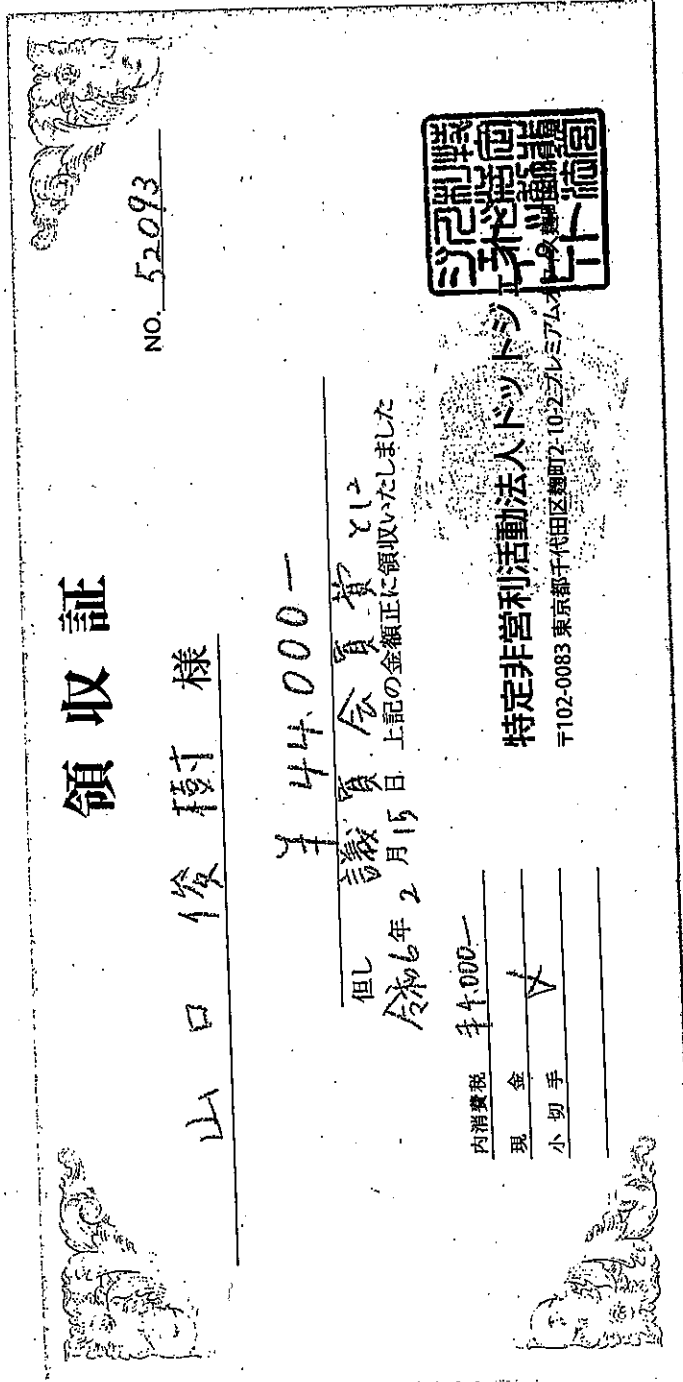 領収証
NO. 52093
山口俊樹 様
¥44.000-
但し 議員会員費として
令和6年2月15日 上記の金額正に領収いたしました
内消費税 ¥4.000-
現金 ✓
小切手
特定非営利活動法人ドットジェイピー
〒102-0083 東京都千代田区麹町2-10-2プレミアム